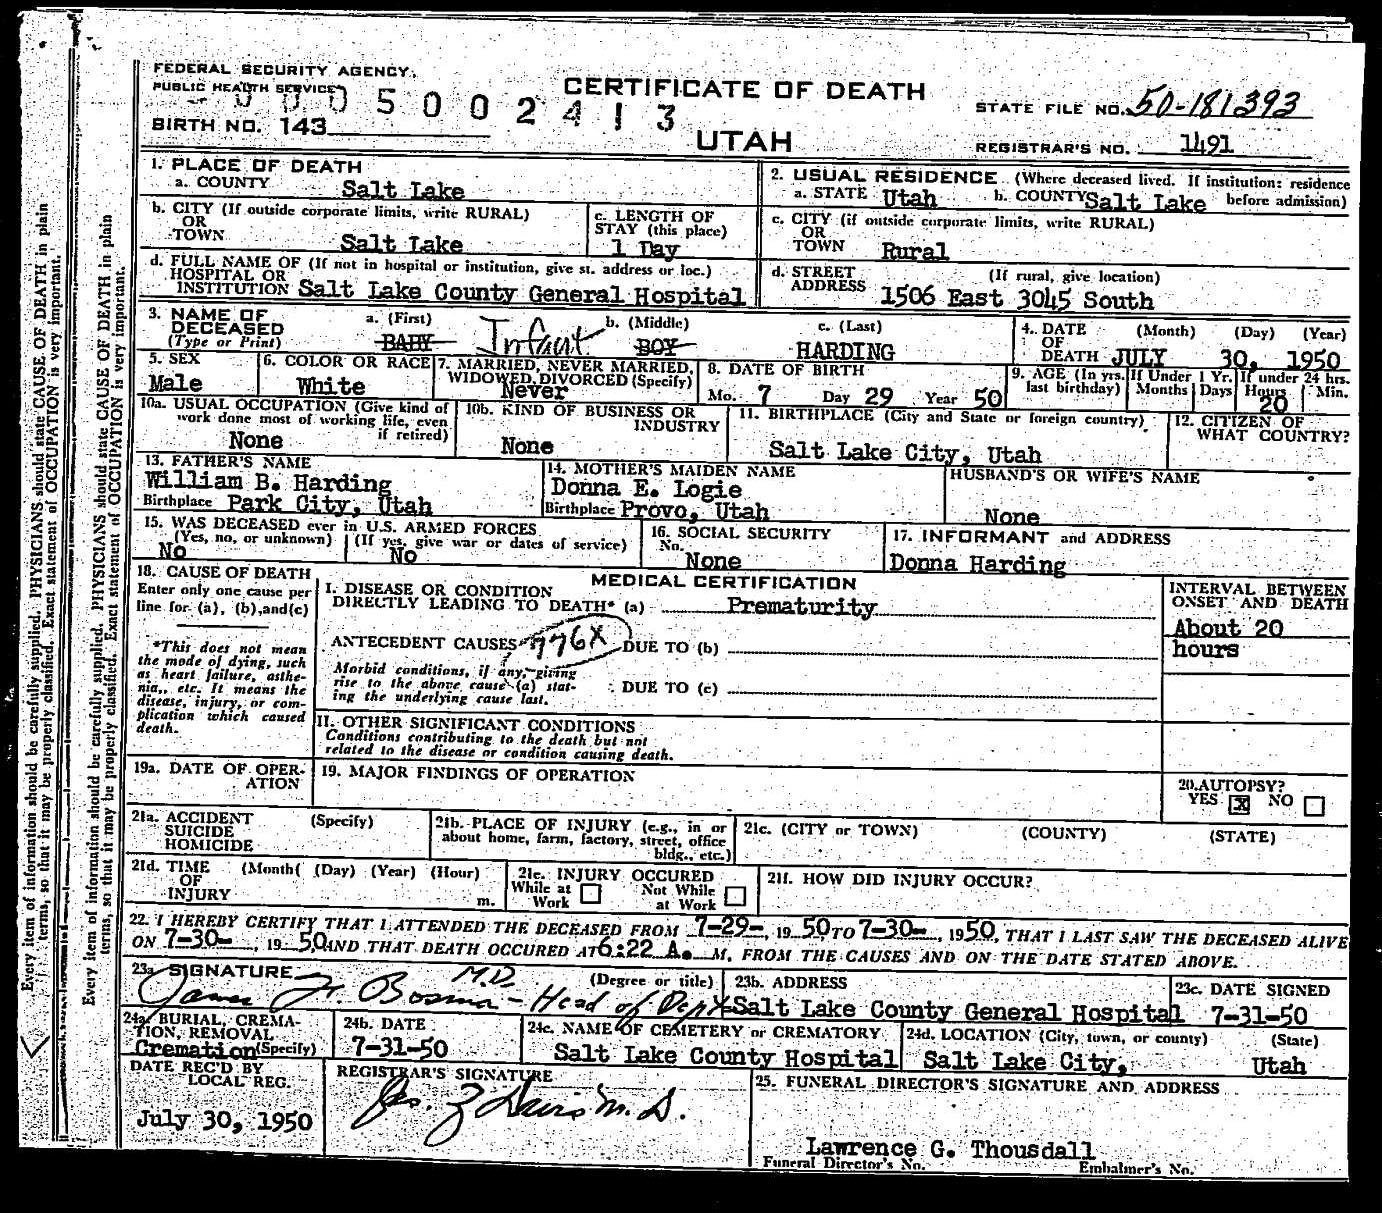 FEDERAL SECURITY AGENCY.
PUBLIC HEALTH SERVICE
CERTIFICATE OF DEATH
STATE FILE NO. 50-181393
0005002413
BIRTH NO. 143
UTAH
REGISTRAR'S NO. 1491
1. PLACE OF DEATH
a. COUNTY Salt Lake
2. USUAL RESIDENCE (Where deceased lived. If institution: residence before admission)
a. STATE Utah b. COUNTY Salt Lake
b. CITY (If outside corporate limits, write RURAL)
OR
TOWN Salt Lake
c. LENGTH OF
STAY (this place)
1 Day
c. CITY (if outside corporate limits, write RURAL)
OR
TOWN Rural
d. FULL NAME OF (If not in hospital or institution, give st. address or loc.)
HOSPITAL OR
INSTITUTION Salt Lake County General Hospital
d. STREET (If rural, give location)
ADDRESS 1506 East 3045 South
3. NAME OF
DECEASED
(Type or Print)
a. (First) b. (Middle) c. (Last)
BABY Infant BOY HARDING
4. DATE (Month) (Day) (Year)
OF
DEATH JULY 30, 1950
5. SEX
Male
6. COLOR OR RACE
White
7. MARRIED, NEVER MARRIED,
WIDOWED, DIVORCED (Specify)
Never
8. DATE OF BIRTH
Mo. 7 Day 29 Year 50
9. AGE (In yrs. last birthday) If Under 1 Yr. Months Days If under 24 hrs. Hours Min.
20
10a. USUAL OCCUPATION (Give kind of
work done most of working life, even
if retired)
None
10b. KIND OF BUSINESS OR
INDUSTRY
None
11. BIRTHPLACE (City and State or foreign country)
Salt Lake City, Utah
12. CITIZEN OF
WHAT COUNTRY?
13. FATHER'S NAME
William B. Harding
Birthplace Park City, Utah
14. MOTHER'S MAIDEN NAME
Donna E. Logie
Birthplace Provo, Utah
HUSBAND'S OR WIFE'S NAME
None
15. WAS DECEASED ever in U.S. ARMED FORCES
(Yes, no, or unknown) (If yes, give war or dates of service)
No No
16. SOCIAL SECURITY
No. None
17. INFORMANT and ADDRESS
Donna Harding
18. CAUSE OF DEATH
Enter only one cause per
line for (a), (b), and (c)
*This does not mean
the mode of dying, such
as heart failure, asthe-
nia,, etc. It means the
disease, injury, or com-
plication which caused
death.
MEDICAL CERTIFICATION
I. DISEASE OR CONDITION
DIRECTLY LEADING TO DEATH* (a) Prematurity
ANTECEDENT CAUSES 776X DUE TO (b)
Morbid conditions, if any, giving
rise to the above cause (a) stat-
ing the underlying cause last.
DUE TO (c)
INTERVAL BETWEEN
ONSET AND DEATH
About 20
hours
II. OTHER SIGNIFICANT CONDITIONS
Conditions contributing to the death but not
related to the disease or condition causing death.
19a. DATE OF OPER-
ATION
19. MAJOR FINDINGS OF OPERATION
20. AUTOPSY?
YES X NO
21a. ACCIDENT (Specify)
SUICIDE
HOMICIDE
21b. PLACE OF INJURY (e.g., in or
about home, farm, factory, street, office
bldg., etc.)
21c. (CITY or TOWN) (COUNTY) (STATE)
21d. TIME (Month( (Day) (Year) (Hour)
OF
INJURY m.
21e. INJURY OCCURED
While at Work Not While at Work
21f. HOW DID INJURY OCCUR?
22. I HEREBY CERTIFY THAT I ATTENDED THE DECEASED FROM 7-29-, 19 50, TO 7-30-, 1950, THAT I LAST SAW THE DECEASED ALIVE
ON 7-30-, 19 50 AND THAT DEATH OCCURED AT 6:22 A. M. FROM THE CAUSES AND ON THE DATE STATED ABOVE.
23a. SIGNATURE (Degree or title)
M.D.
Bosma - Head of Dept
23b. ADDRESS
Salt Lake County General Hospital
23c. DATE SIGNED
7-31-50
24a. BURIAL, CREMA-
TION, REMOVAL
Cremation (Specify)
24b. DATE
7-31-50
24c. NAME OF CEMETERY or CREMATORY
Salt Lake County Hospital
24d. LOCATION (City, town, or county) (State)
Salt Lake City, Utah
DATE REC'D BY
LOCAL REG.
July 30, 1950
REGISTRAR'S SIGNATURE
Davis M.D.
25. FUNERAL DIRECTOR'S SIGNATURE AND ADDRESS
Lawrence G. Thousdall
Funeral Director's No. Embalmer's No.
Every item of information should be carefully supplied. PHYSICIANS should state CAUSE OF DEATH in plain
terms, so that it may be properly classified. Exact statement of OCCUPATION is very important.
Every item of information should be carefully supplied. PHYSICIANS should state CAUSE OF DEATH in plain
terms, so that it may be properly classified. Exact statement of OCCUPATION is very important.